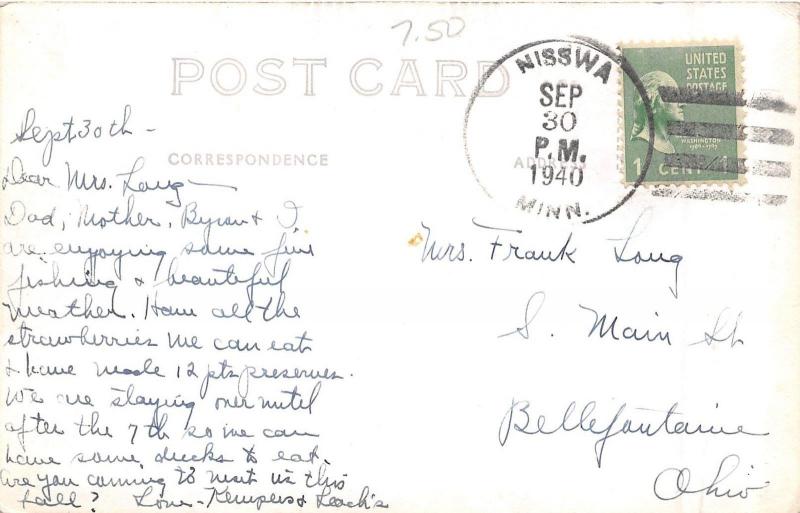 7.50
POST CARD
NISSWA
SEP
30
P.M.
1940
MINN.
UNITED
STATES
POSTAGE
WASHINGTON
1 CENT 1
CORRESPONDENCE
ADDRESS
Sept. 30th –
Dear Mrs. Long –
Dad, Mother, Byron & I
are enjoying some fine
fishing & beautiful
weather. Have all the
strawberries we can eat
& have made 12 pts preserves.
We are staying over until
after the 7th so we can
have some ducks to eat.
Are you coming to visit us this
fall? Love – Kempers & Leach's
Mrs. Frank Long
S. Main St
Bellefontaine
Ohio